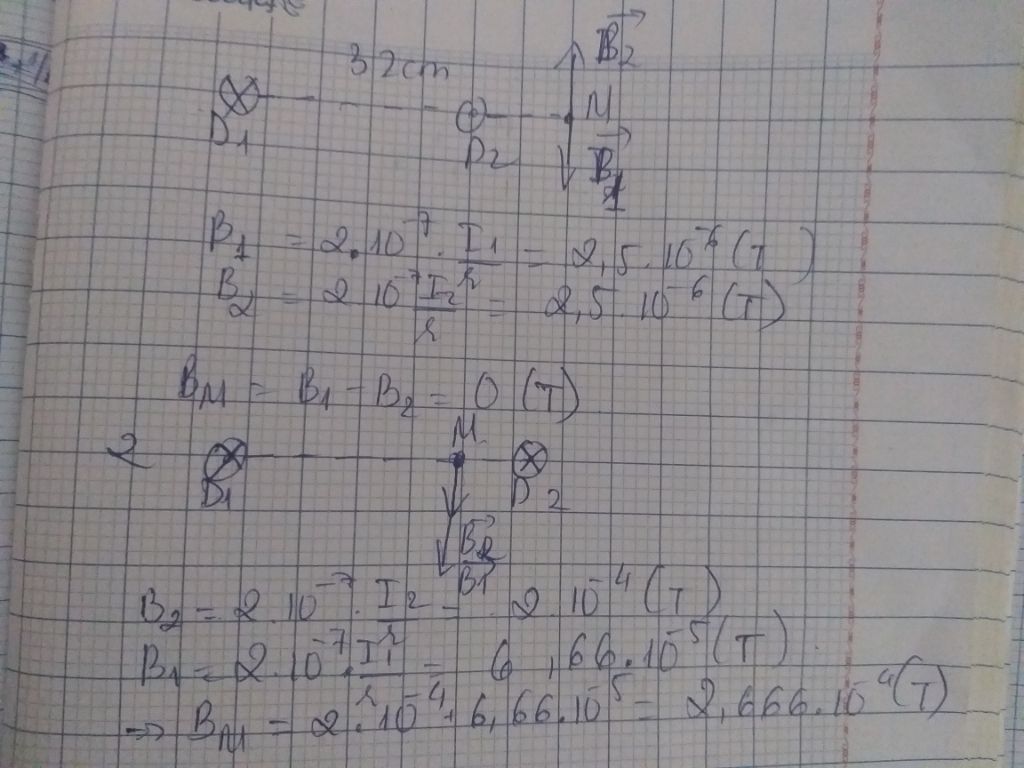 32cm
B⃗₂
D₁
D₂
M
B⃗₁
B₁ = 2.10⁻⁷. I₁/r = 2,5.10⁻⁶ (T)
B₂ = 2 10⁻⁷ I₂/r = 2,5.10⁻⁶ (T)
B_M = B₁ - B₂ = 0 (T)
2
M
D₁
D₂
B⃗₂
B⃗₁
B₂ = 2.10⁻⁷. I₂/r = 2 10⁻⁴ (T)
B₁ = 2.10⁻⁷. I₁/r = 6,66.10⁻⁵ (T)
→ B_M = 2.10⁻⁴ + 6,66.10⁻⁵ = 2,666.10⁻⁴ (T)